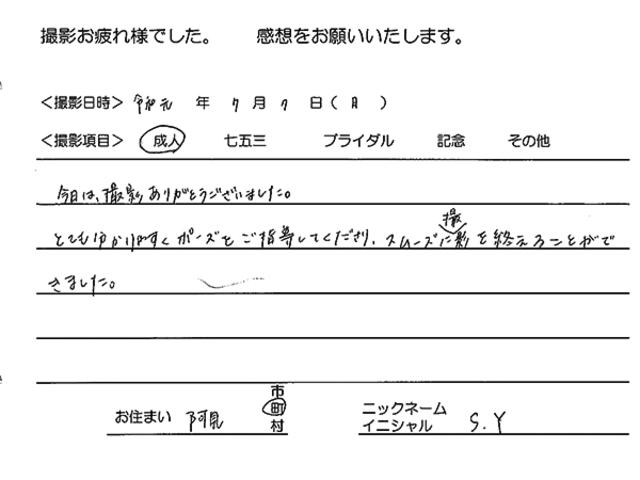 撮影お疲れ様でした。 感想をお願いいたします。
<撮影日時> 令和元 年 7 月 7 日 ( 日 )
<撮影項目> 成人 七五三 ブライダル 記念 その他
今日は、撮影ありがとうございました。
とてもわかりやすくポーズをご指導してくださり、スムーズに撮影を終えることがで
きました。
お住まい 阿見 市 町 村
ニックネーム
イニシャル S.Y